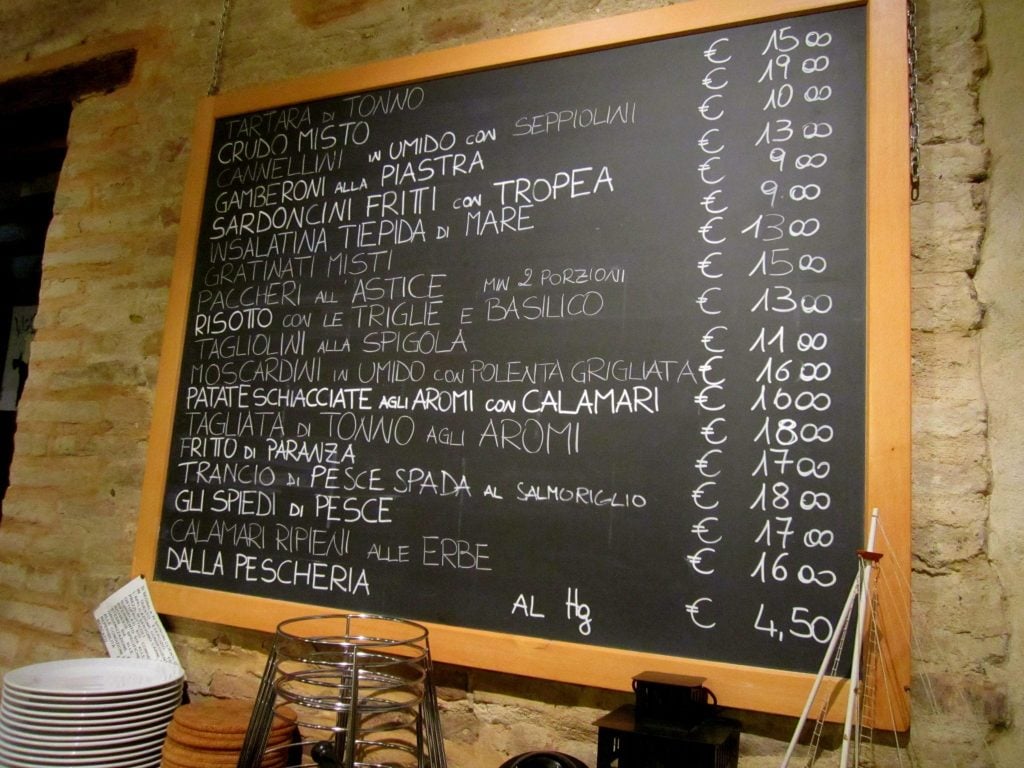 TARTARA DI TONNO € 15 00
CRUDO MISTO € 19 00
CANNELLINI IN UMIDO CON SEPPIOLINI € 10 00
GAMBERONI ALLA PIASTRA € 13 00
SARDONCINI FRITTI CON TROPEA € 9 00
INSALATINA TIEPIDA DI MARE € 9.00
GRATINATI MISTI € 13 00
PACCHERI ALL'ASTICE MIN 2 PORZIONI € 15 00
RISOTTO CON LE TRIGLIE E BASILICO € 13 00
TAGLIOLINI ALLA SPIGOLA € 11 00
MOSCARDINI IN UMIDO CON POLENTA GRIGLIATA € 16 00
PATATE SCHIACCIATE AGLI AROMI CON CALAMARI € 16 00
TAGLIATA DI TONNO AGLI AROMI € 18 00
FRITTO DI PARANZA € 17 00
TRANCIO DI PESCE SPADA AL SALMORIGLIO € 18 00
GLI SPIEDI DI PESCE € 17 00
CALAMARI RIPIENI ALLE ERBE € 16 00
DALLA PESCHERIA AL Hg € 4,50